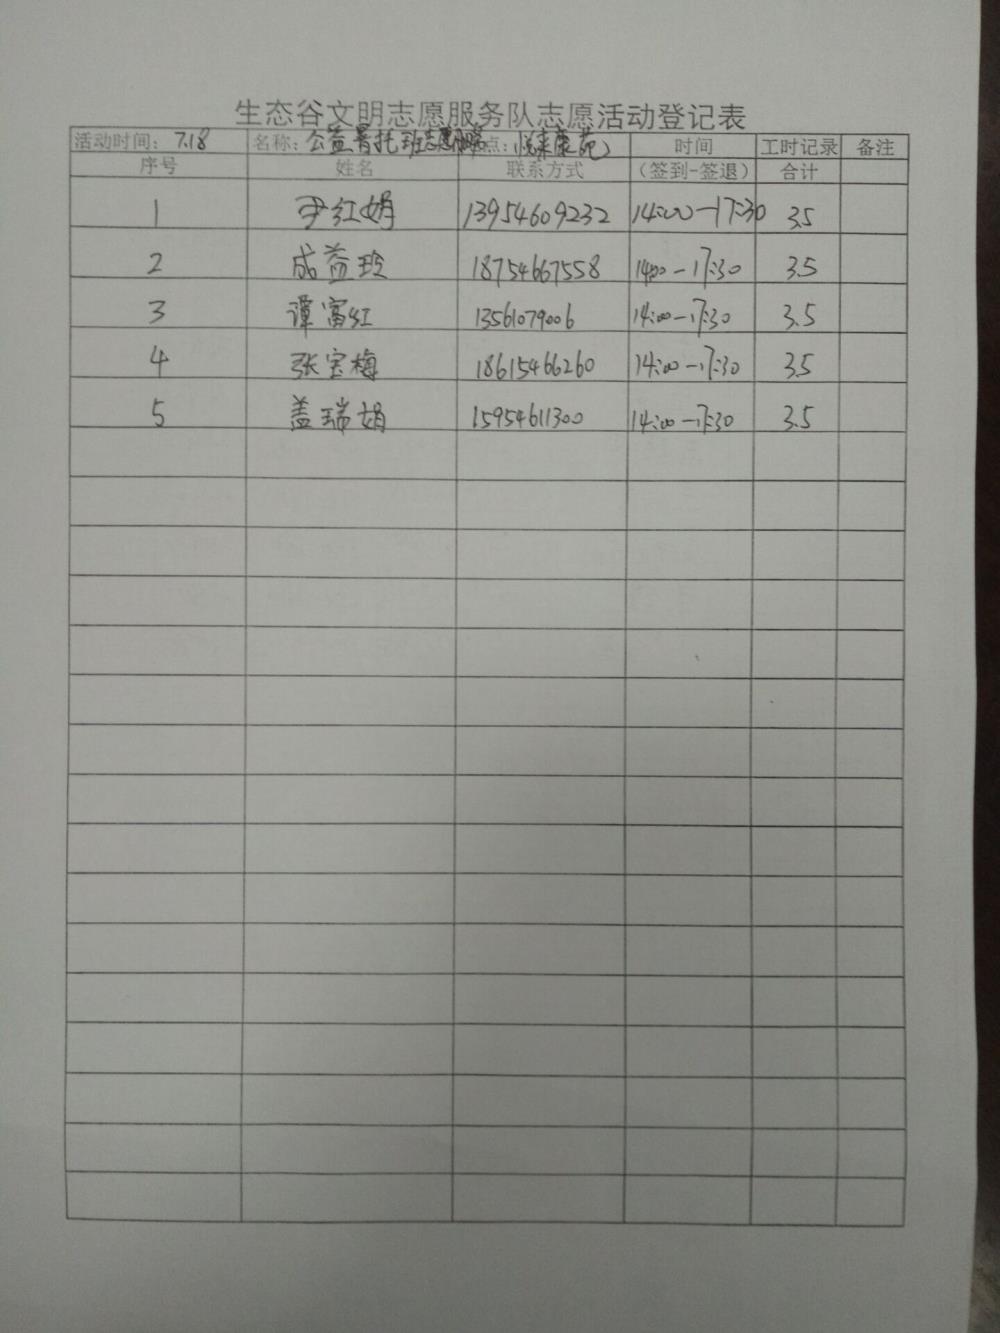 生态谷文明志愿服务队志愿活动登记表
活动时间：7.18 名称：公益暑托班志愿服务 点：悦来康苑 时间 工时记录 备注
序号 姓名 联系方式 （签到-签退） 合计
1 尹红娟 13954609232 14:00-17:30 3.5
2 成益玲 18754667558 14:00-17:30 3.5
3 谭富红 13561079006 14:00-17:30 3.5
4 张宝梅 18615466260 14:00-17:30 3.5
5 盖瑞娟 15954611300 14:00-17:30 3.5